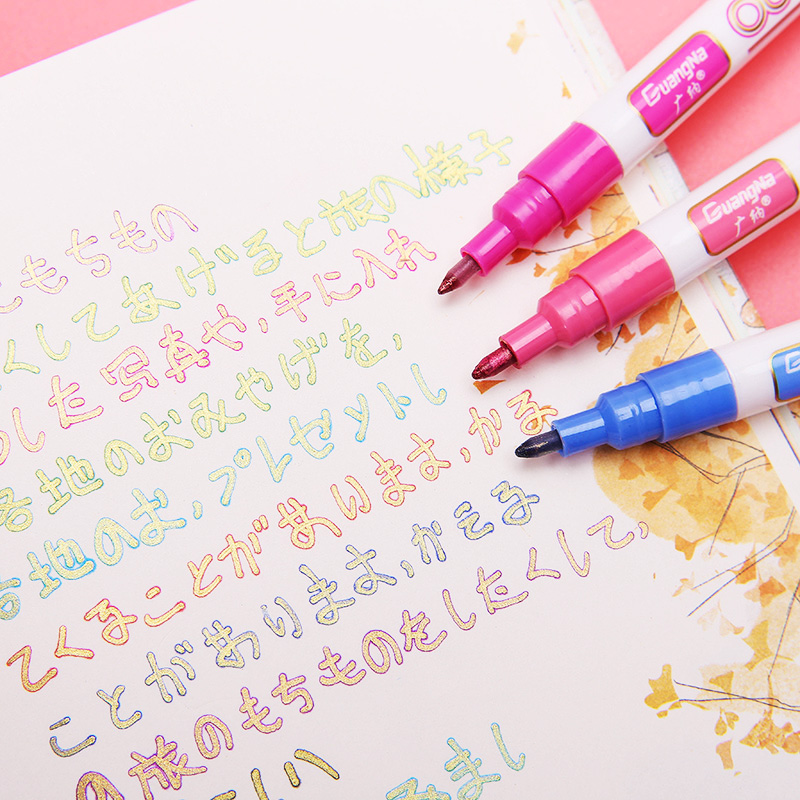 こもちもの
くしてあげると旅の様子
した写真や,手に入れ
各地のおみやげを,
各地のお,プレゼントし
てくることがあります,かる
ことがあります,かえる
の旅のもちものをしたくして,
しい
みまし
GuangNa
广纳®
GuangNa
广纳®